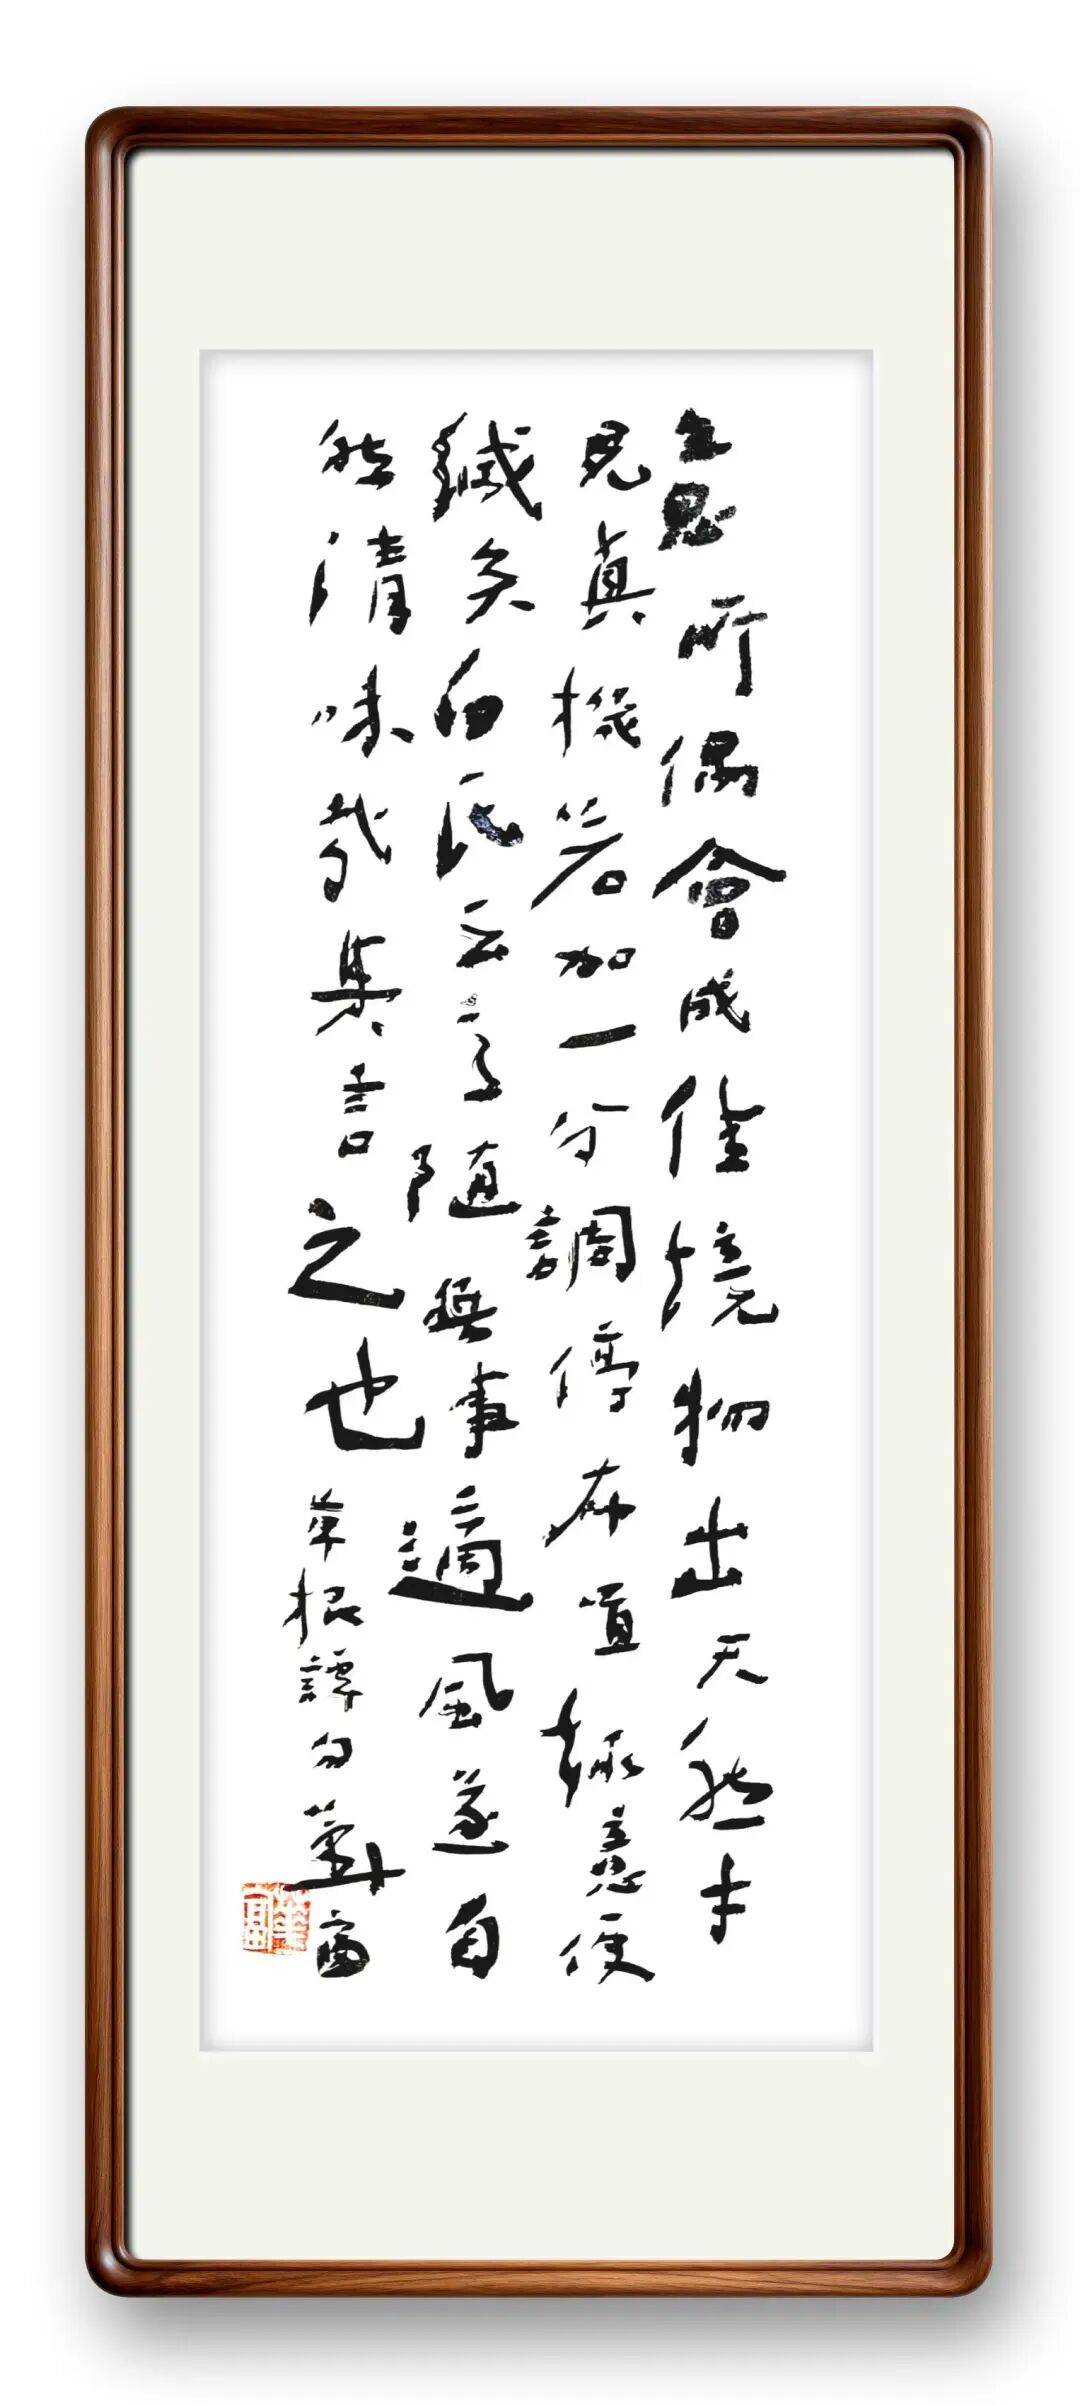 意所偶會成佳境物出天然才
見真機若加一分調停布置趣意便
鍼矣白氏云意隨無事適風逐自
然清味哉其言之也菜根譚句華